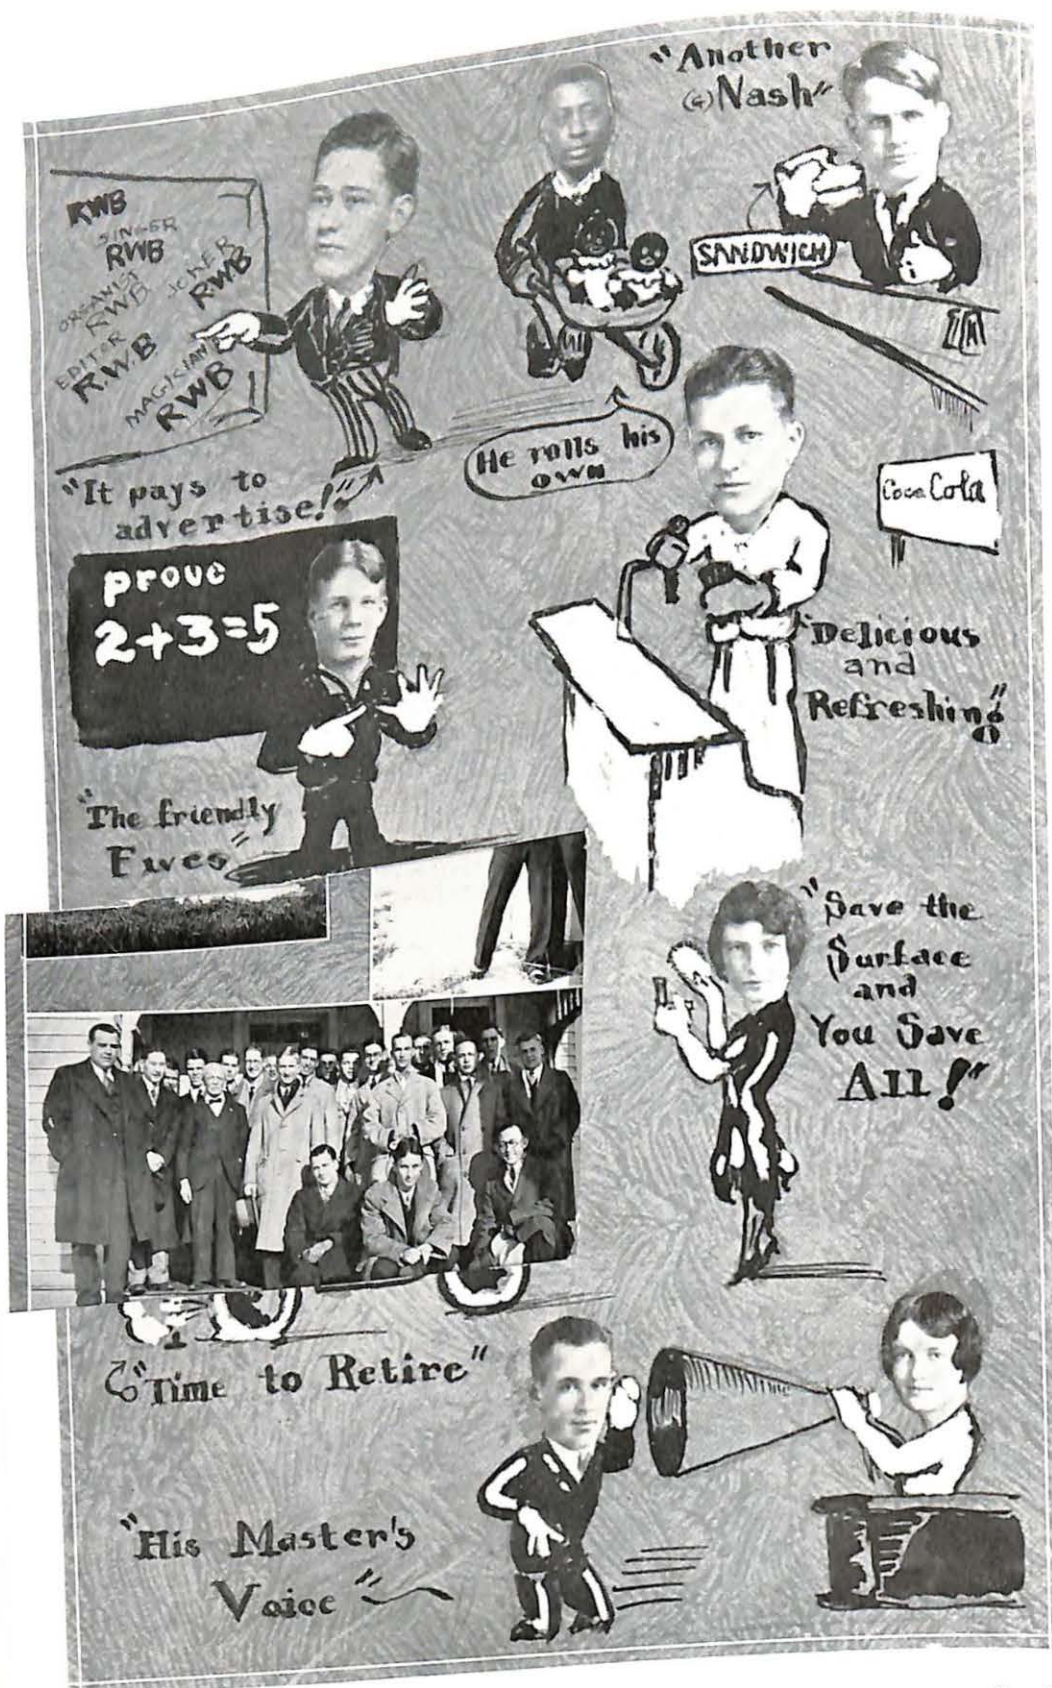 "Another
(G)Nash"
RWB
SINGER
RWB
JOKER
RWB
ORGANIST
RWB
EDITOR
R.W.B
MAGICIAN
RWB
SANDWICH
"It pays to
advertise!"
He rolls his
own
Coca Cola
prove
2+3=5
"Delicious
and
Refreshing"
"The friendly
Fives"
"Save the
Surface
and
You Save
All!"
"Time to Retire"
"His Master's
Voice"